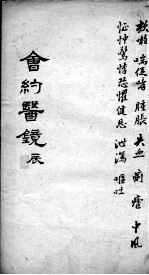 欬嗽 喘促哮 腫脹 失血 中風
怔忡驚悸恐懼健忘 泄瀉 嘔吐
會約醫鏡 辰